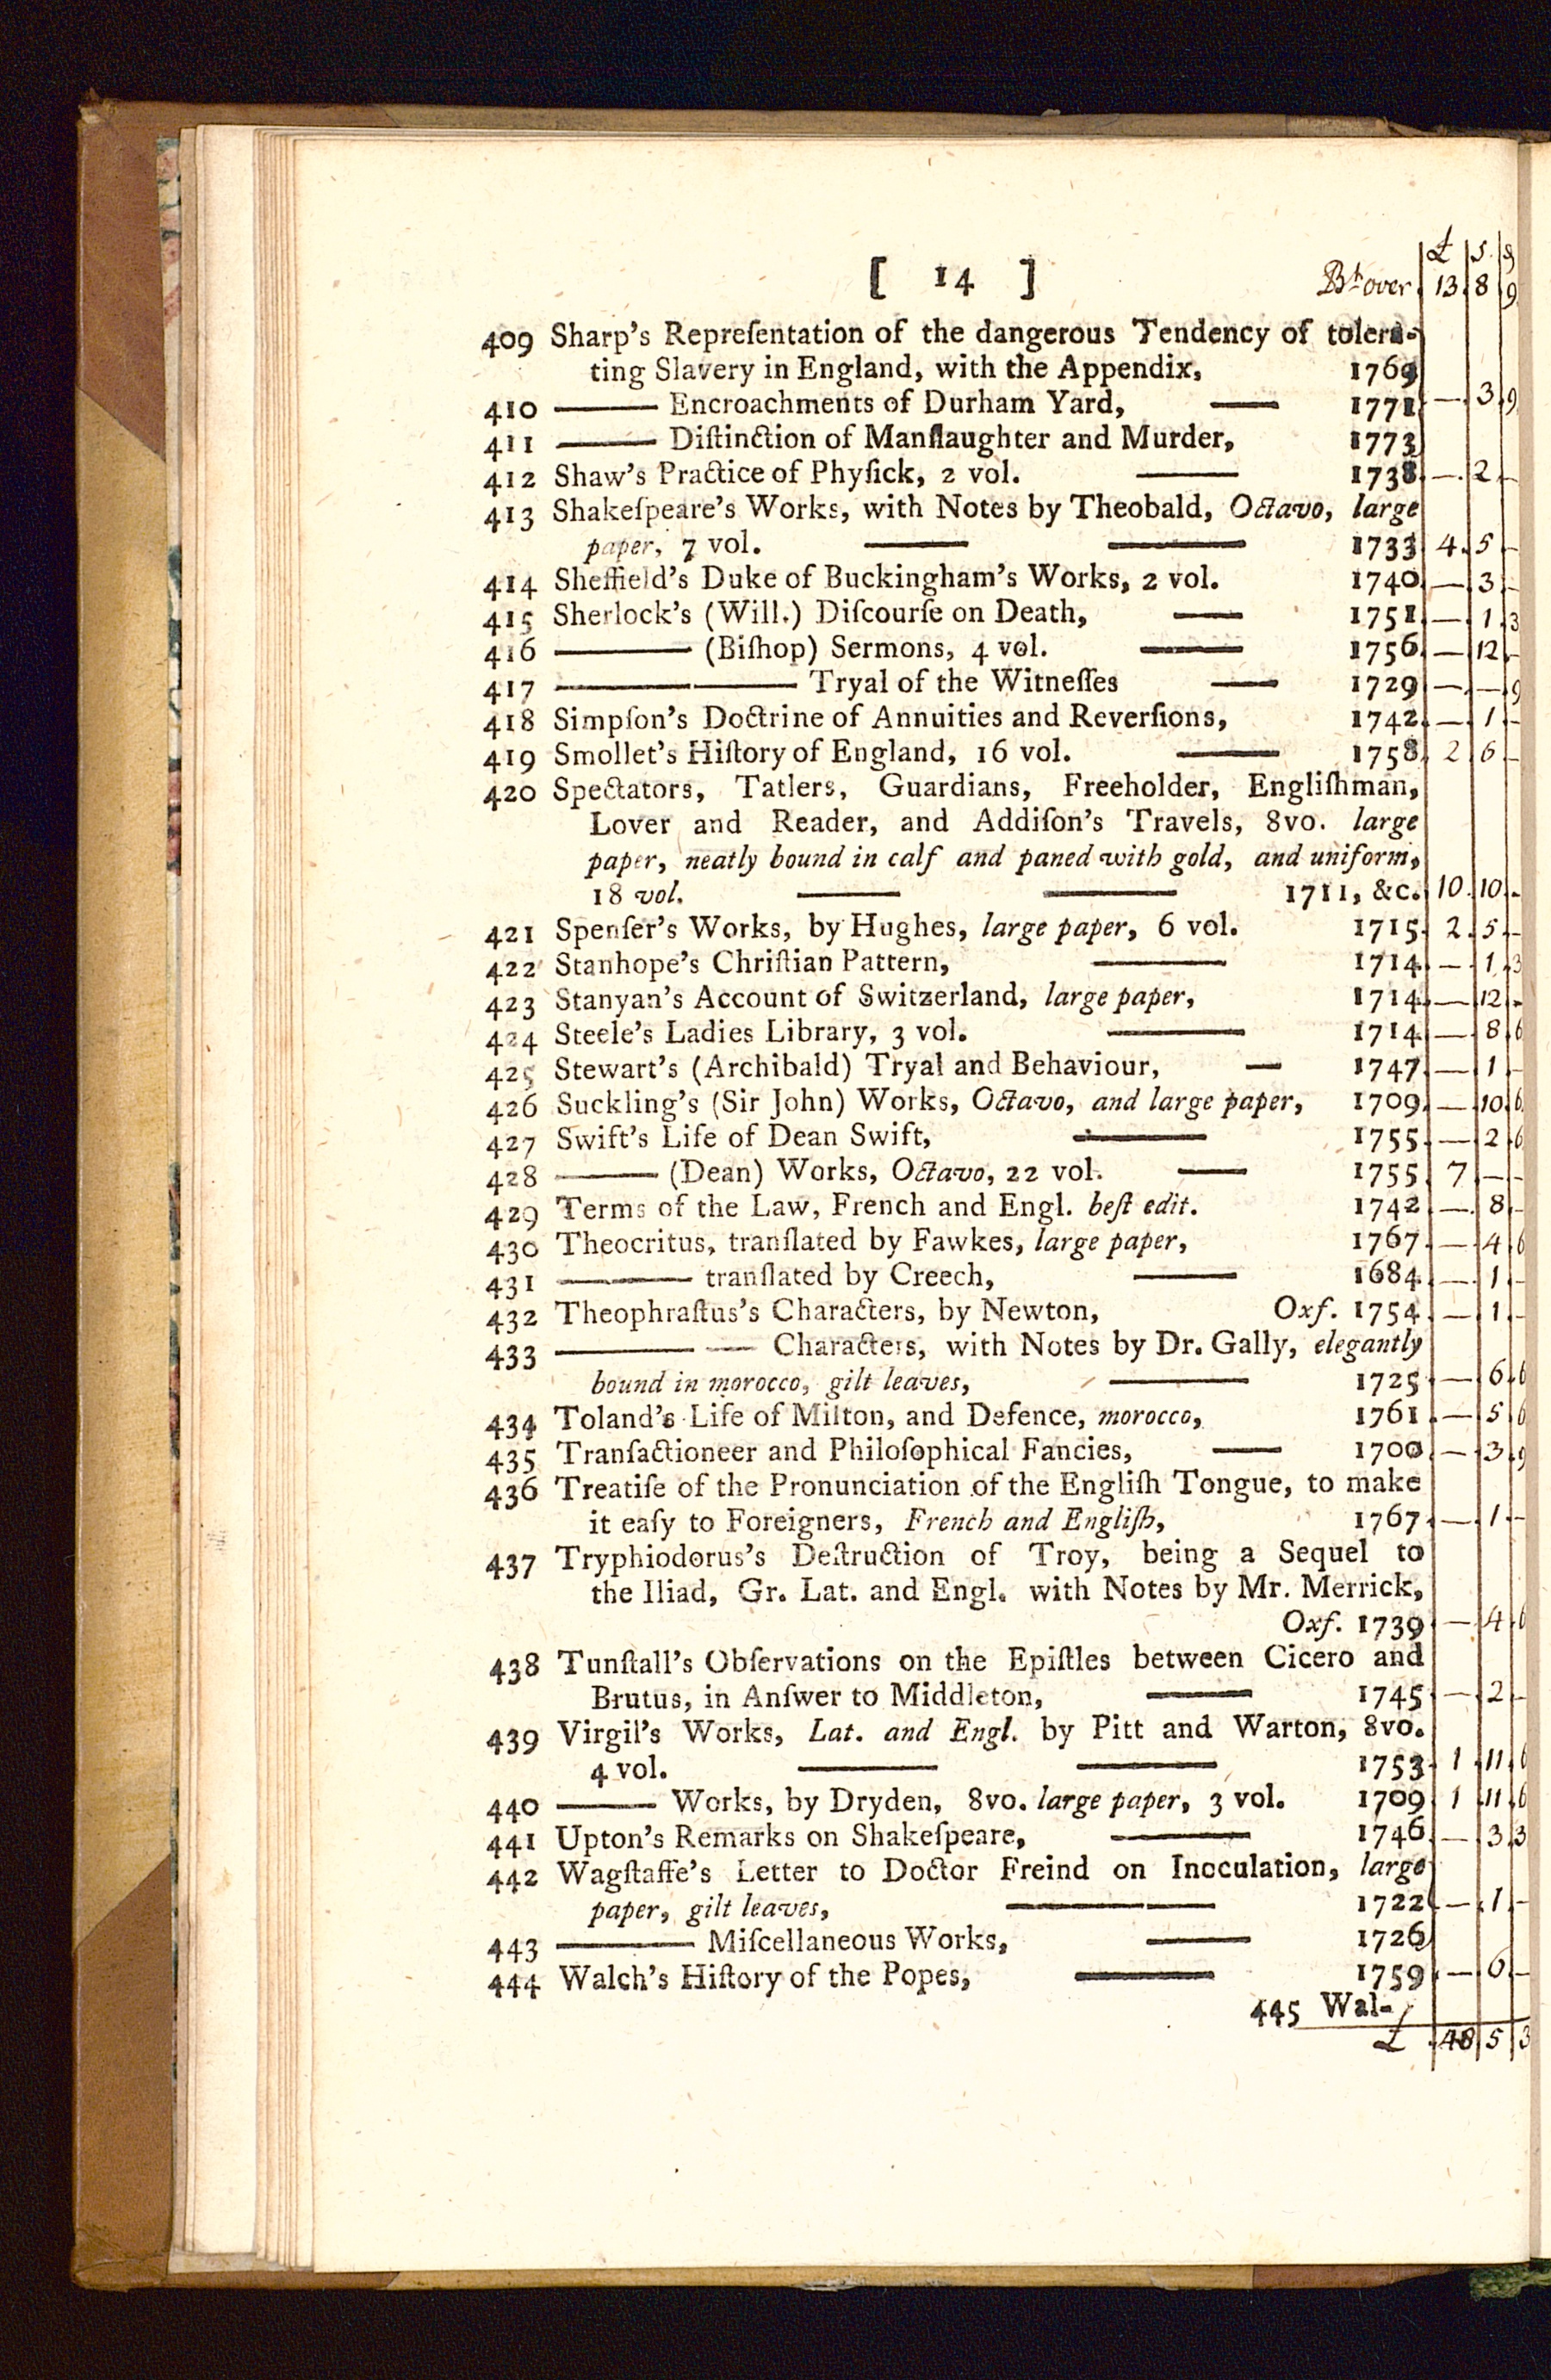 £ s. d
[ 14 ] Bt over 13 8 9
409 Sharp's Repreſentation of the dangerous Tendency of tolera-
ting Slavery in England, with the Appendix, 1769
410 ——— Encroachments of Durham Yard, —— 1771 — 3 9
411 ——— Diſtinction of Manſlaughter and Murder, 1773
412 Shaw's Practice of Phyſick, 2 vol. ——— 1738 — 2 —
413 Shakeſpeare's Works, with Notes by Theobald, Octavo, large
paper, 7 vol. ——— ———— 1733 4 5 —
414 Sheffield's Duke of Buckingham's Works, 2 vol. 1740 — 3 —
415 Sherlock's (Will.) Diſcourſe on Death, —— 1751 — 1 3
416 ———— (Biſhop) Sermons, 4 vol. ——— 1756 — 12 —
417 ———— ——— Tryal of the Witneſſes —— 1729 — — 9
418 Simpſon's Doctrine of Annuities and Reverſions, 1742 — 1 —
419 Smollet's Hiſtory of England, 16 vol. ——— 1758 2 6 —
420 Spectators, Tatlers, Guardians, Freeholder, Engliſhman,
Lover and Reader, and Addiſon's Travels, 8vo. large
paper, neatly bound in calf and paned with gold, and uniform,
18 vol. ——— ———— 1711, &c. 10 10 -
421 Spenſer's Works, by Hughes, large paper, 6 vol. 1715 2 5 —
422 Stanhope's Chriſtian Pattern, ———— 1714 — 1 3
423 Stanyan's Account of Switzerland, large paper, 1714 — 12 -
424 Steele's Ladies Library, 3 vol. ———— 1714 — 8 6
425 Stewart's (Archibald) Tryal and Behaviour, — 1747 — 1 —
426 Suckling's (Sir John) Works, Octavo, and large paper, 1709 — 10 6
427 Swift's Life of Dean Swift, ———— 1755 — 2 6
428 ——— (Dean) Works, Octavo, 22 vol. —— 1755 7 — —
429 Terms of the Law, French and Engl. beſt edit. 1742 — 8 —
430 Theocritus, tranſlated by Fawkes, large paper, 1767 — 4 6
431 ———— tranſlated by Creech, ——— 1684 — 1 —
432 Theophraſtus's Characters, by Newton, Oxf. 1754 — 1 —
433 ———— —— Characters, with Notes by Dr. Gally, elegantly
bound in morocco, gilt leaves, ———— 1725 — 6 6
434 Toland's Life of Milton, and Defence, morocco, 1761 — 5 6
435 Tranſactioneer and Philoſophical Fancies, —— 1700 — 3 9
436 Treatiſe of the Pronunciation of the Engliſh Tongue, to make
it eaſy to Foreigners, French and Engliſh, 1767 — 1 —
437 Tryphiodorus's Deſtruction of Troy, being a Sequel to
the Iliad, Gr. Lat. and Engl. with Notes by Mr. Merrick,
Oxf. 1739 — 4 6
438 Tunſtall's Obſervations on the Epiſtles between Cicero and
Brutus, in Anſwer to Middleton, ——— 1745 — 2 —
439 Virgil's Works, Lat. and Engl. by Pitt and Warton, 8vo.
4 vol. ———— ———— 1753 1 11 6
440 ——— Works, by Dryden, 8vo. large paper, 3 vol. 1709 1 11 6
441 Upton's Remarks on Shakeſpeare, ———— 1746 — 3 3
442 Wagſtaffe's Letter to Doctor Freind on Inoculation, large
paper, gilt leaves, ———— —— 1722 — 1 —
443 ———— Miſcellaneous Works, ——— 1726
444 Walch's Hiſtory of the Popes, ———— 1759 — 6 —
445 Wal-
£ 48 5 3